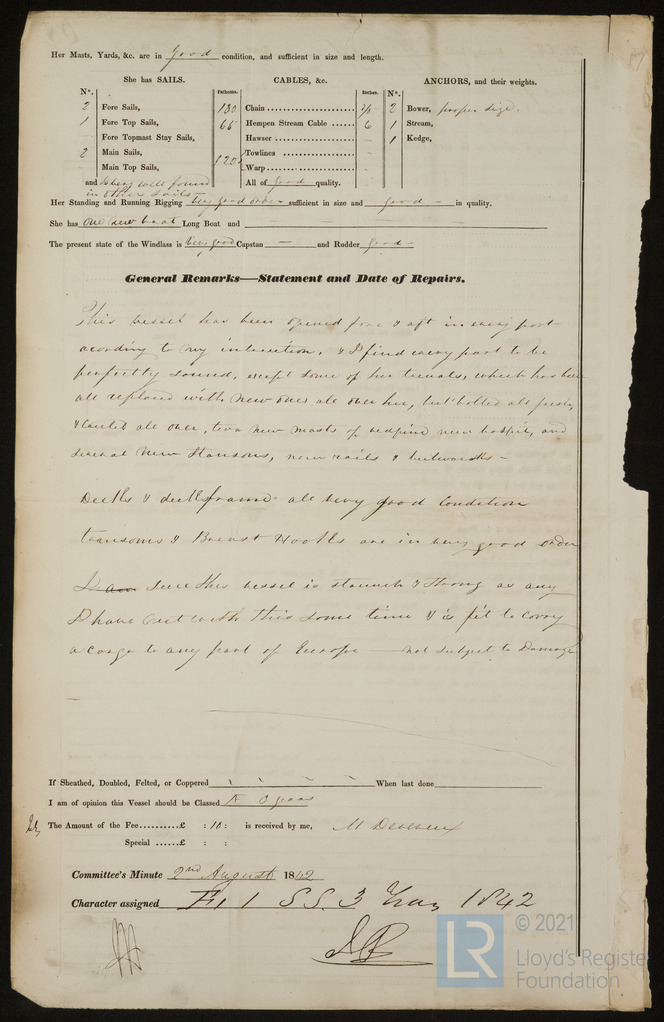 Her Masts, Yards, &c. are in Good condition, and sufficient in size and length.
She has SAILS.
CABLES, &c.
ANCHORS, and their weights.
N°.
Fathoms.
Inches.
N°.
2 Fore Sails, 180 Chain
2 Bower, proper size.
1 Fore Top Sails, 65 Hempen Stream Cable ...... 6
1 Stream,
Fore Topmast Stay Sails, Hawser
1 Kedge,
2 Main Sails, 120 Towlines
Main Top Sails, Warp
and is very well found All of good quality.
in other Sails
Her Standing and Running Rigging very good order sufficient in size and good in quality.
She has one new boat Long Boat and
The present state of the Windlass is very good Capstan — and Rudder good
General Remarks—Statement and Date of Repairs.
This vessel has been opened fore & aft in every part
acording to my intruction, & I find every part to be
perfectly sound, except some of her trenals, which has been
all replaced with new ones all over her, but bolted all fresh,
& Caulk'd all over, two new masts of redpine new and
several New Stansons, new rails & bulwarks —
Decks & deckframe all very good Condition
transoms & Breast Hooks are in very good order
I am this vessel is staunch & strong as any
I have met with this some time & is fit to carry
a cargo to any part of Europe — not subject to Damage
If Sheathed, Doubled, Felted, or Coppered When last done
I am of opinion this Vessel should be Classed
The Amount of the Fee..........£ : 10 : is received by me, M Devereux
Special ......£ : :
Committee's Minute 2nd August 1842
Character assigned 1 SS. 3 Years 1842
© 2021
LR
Lloyd's Register
Foundation